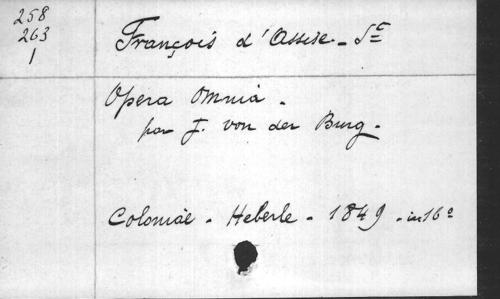 258
263
1
François d'Assise - St
Opera Omnia -
par J. von der Burg -
Coloniae - Heberle - 1849 - in 16º